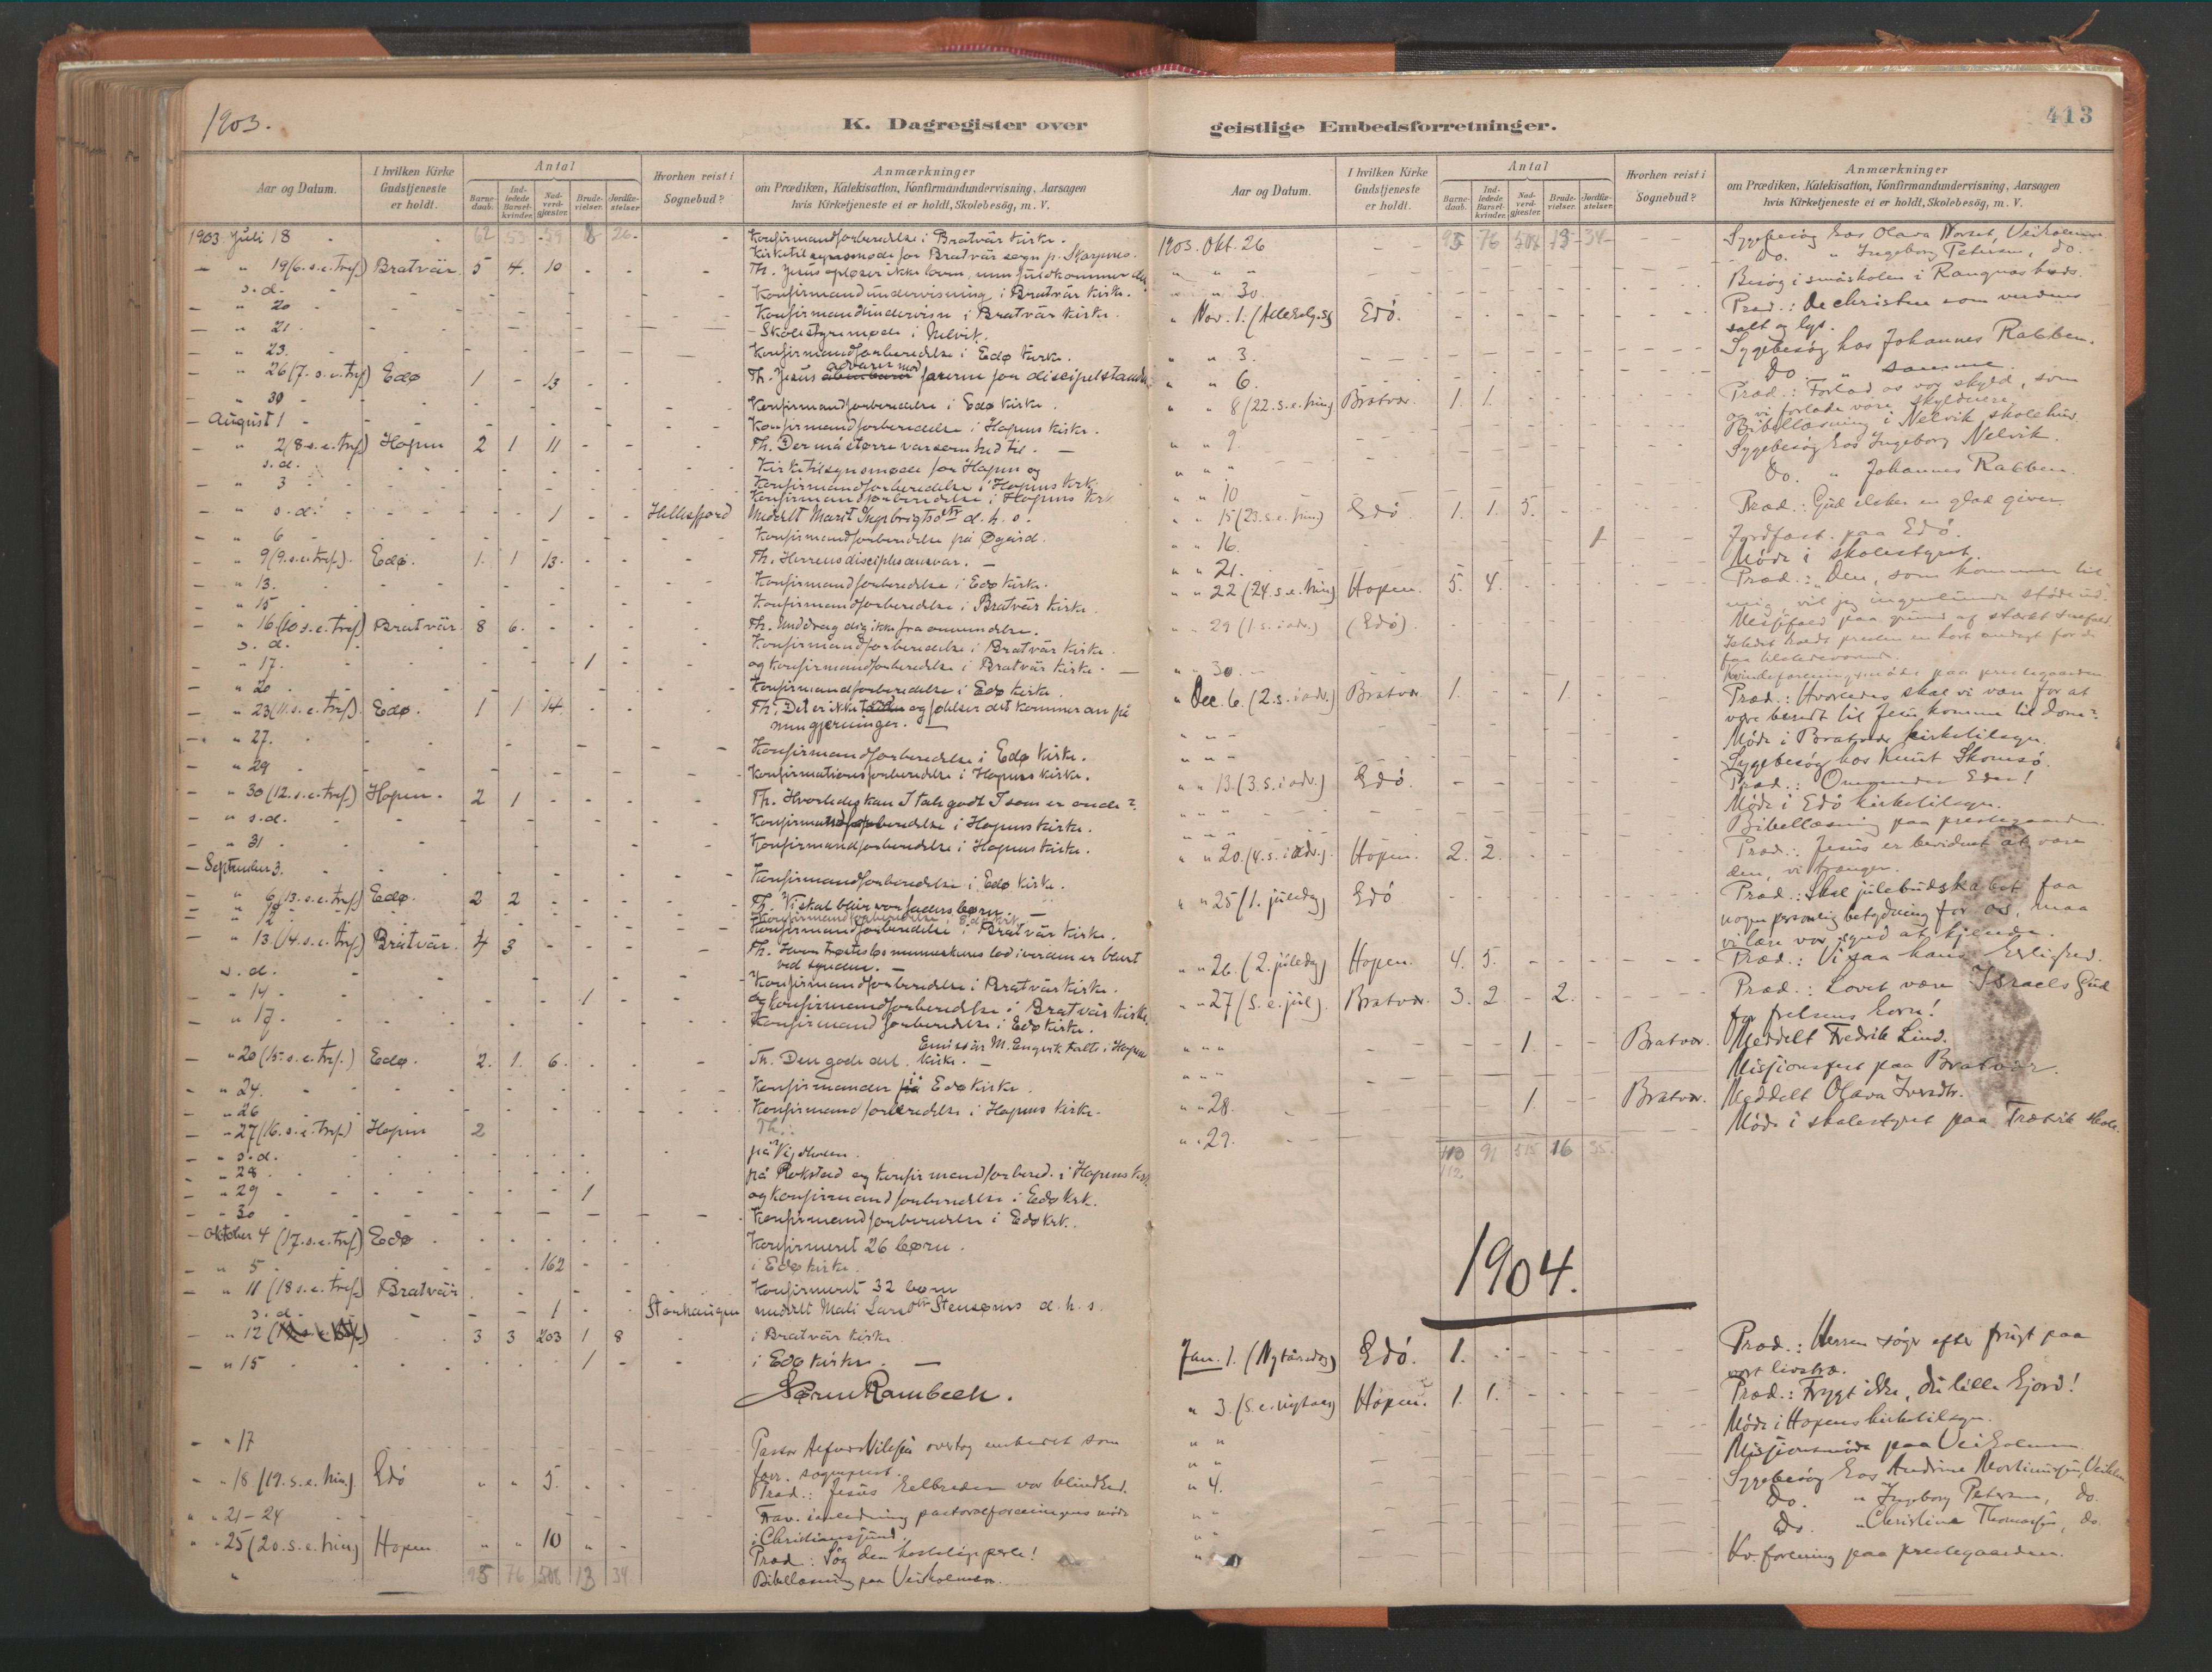 1903.
K. Dagregister over
Aar og Datum.
I hvilken Kirke Gudstjeneste er holdt.
Antal
Barne-daab.
Ind-ledede Barsel-kvinder.
Nad-verd-gjester.
Brude-vielser.
Jordfæ-stelser
Hvorhen reist i Sognebud?
Anmærkninger
om Prædiken, Katekisation, Konfirmandundervisning, Aarsagen
hvis Kirketjeneste ei er holdt, Skolebesög, m. V.
1903. Juli 18 - - 62 53 59 8 26 - Konfirmandforberedelse i Bratvär kirke.
Kirketilsynsmøde for Bratvär sogn p.
" 19 (6. s. e. tref.) Bratvär 5 4. 10 - - - Th. Jesus opløser ikke loven, men fuldkommer den
s. d. Konfirmandundervisning i Bratvär kirke.
" 20 Konfirmandundervisn i Bratvär kirke.
" 21. - Skolestyremøde i Nelvik.
" 23. Konfirmandforberedelse i Edø kirke.
" 26 (7. s. e. tref) Edø 1 - 13 - - Th. Jesus advarer mod farerne for discipelstanden
" 30 Konfirmandforberedelse i Edø kirke.
- August 1 Konfirmandforberedelse i Hopens kirke.
" 2 (8. s. e. tref) Hopen 2 1 11 - - Th. Der må større varsomhed til. -
s. d. Kirketilsynsmøde for Hopen og
Konfirmandforberedelse i Hopens kirk.
" 3 Konfirmandforberedelse i Hopens kirk.
" s. d. 1 - - Hellesfjord Meddelt Marit Ingebrigtsdtr d. h. s.
" 6 Konfirmandforberedelse på Øgård.
" 9 (9. s. e. tref.) Edø. 1. 1 13. - - Th. Herrens disciples ansvar. -
" 13. Konfirmandforberedelse i Edø kirke.
" 15 Konfirmandforberedelse i Bratvär kirke.
" 16. (10 s. e. tref) Bratvär. 8 6. - - Th. Unddrag dig ikke fra omvendelse.
s. d. Konfirmandforberedelse i Bratvär kirke.
" 17. 1 - og konfirmandforberedelse i Bratvär kirke. -
" 20 Konfirmandforberedelse i Edø kirke.
" 23 (11. s. e. tref). Edø. 1 1 14. - - Th. Det er ikke og følelser det kommer an på
men gjerninger. -
" 27. Konfirmandforberedelse i Edø kirke.
" 29 Konfirmationsforberedelse i Hopens kirke.
" 30 (12. s. e. tref) Hopen. 2 1 - - - Th. Hvorledes kan I tale godt I som er onde?
" s. d. Konfirmandforberedelse i Hopens kirke.
" 31 Konfirmandforberedelse i Hopens kirke.
- September 3. Konfirmandforberedelse i Edø kirke.
" 6 (13. s. e. tref) Edø. 2 2 - - - Th. Vi skal blive vor faders børn -
Konfirmandforberedelse i Edø kirk.
" 12 Konfirmandforberedelse i Bratvär kirke.
" 13. (14. s. e. tref) Bratvär. 4 3 Th. Hvor trøstesløs menneskenes lod i verden er blevet
ved synden. -
s. d. Konfirmandforberedelse i Bratvär kirke.
" 14 1 - og konfirmandforberedelse i Bratvär kirke.
" 17. Konfirmandforberedelse i Edø kirke.
Emissär M. Engvik talte i Hopen
" 20 (15. s. e. tref.) Edø. 2. 1. 6. - - Th. Den gode del. kirke. -
" 24. Konfirmander i Edø kirke.
" 26 Konfirmandforberedelse i Hopens kirke.
" 27 (16. s. e. tref) Hopen 2 Th.:
" s. d. på Vejholmen.
" 28 på Rokstad og konfirmandforbered. i Hopens kirk.
" 29 1 og konfirmandforberedelse i Edø krk.
" 30 Konfirmandforberedelse i Edø krk.
- Oktober 4 (17. s. e. tref.) Edø. Konfirmeret 26 børn.
" 5 162 - i Edø kirke.
" 11 (18 s. e. tref.) Bratvär Konfirmeret 32 børn
s. d. 1 Stenhaugen meddelt Mali Larsdtr Stensønes d. h. s.
" 12 3 3 203 1 8 i Bratvär kirke
" 15 1 - i Edø kirke. -
Søren Rambech.
" 17 Pastor overtog embedet som
sogneprest.
" 18 (19. s. e. trin) Edö " " 5. - - Præd.: Jesus helbreder vor blindhed.
" 21-24 Frav. i anledning pastoralforeningens møde
i Christianssund.
" 25 (20. s. e. trin) Hopen " " 10 " - Præd.: Søg den kostelige perle!
" 95 76 508 13 34 Bibellæsning paa Veiholmen.
geistlige Embedsforretninger.
413
Aar og Datum.
I hvilken Kirke Gudstjeneste er holdt.
Antal
Barne-daab.
Ind-ledede Barsel-kvinder.
Nad-verd-gjester.
Brude-vielser.
Jordfæ-stelser.
Hvorhen reist i Sognebud?
Anmærkninger
om Prædiken, Katekisation, Konfirmandundervisning, Aarsagen
hvis Kirketjeneste ei er holdt, Skolebesög, m. V.
1903. Okt. 26 - - 95 76 508 13 34 - - Sygebesøg hos Olava Norset, Veiholmen
" " " Do. " Ingeborg Petersen, do.
" " 30. Besøg i småskolen i kreds.
" Nov. 1. (Allehelg.s) Edö. Præd.: De christne som verdens
salt og lys.
" " 3. Sygebesøg hos Johannes Rabben.
" " 6. Do. " samme.
" " 8 (22. s. e. trin) Bratvær. 1. 1. Præd.: Forlad os vor skyld, som
og vi forlade vore skyldnere.
" " 9. Bibellæsning i Nelvik skolehus.
" " " Sygebesøg hos Ingeborg Nelvik.
" " 10 Do. " Johannes Rabben.
" " 15 (23. s. e. trin) Edö. 1. 1. 5. Præd.: Gud elsker en glad giver.
" " 16. 1 Jordfæst. paa Edö.
" " 21. Möde i skolestyret.
" " 22 (24. s. e. trin) Hopen. 5. 4. Præd.: "Den, som kommer til
mig, vil jeg ingenlunde støde ud.
" " 29 (1. s. i adv.) (Edö). Messefald paa grund af stærkt snefald.
Istedet holdt presten en kort andagt for de
faa tilstedeværende.
" " 30. Kvindeforeningsmøde paa prestegaarden
" Dec. 6. (2. s. i adv.) Bratvær 1. - - 1. Præd.: Hvorledes skal vi være for at
være beredt til Jesu komme til dom?
" " " Möde i Bratvær kirketilsyn.
" " " Sygebesøg hos Knut Skomsö.
" " 13. (3. s. i adv.) Edö Præd.: Omvender Eder!
" " " Möde i Edö kirketilsyn.
" " " Bibellæsning paa prestegaarden.
" " 20. (4. s. i adv.). Hopen. 2. 2. Præd.: Jesus er bevidnet at være
den, vi trænger.
" " 25 (1. juledag) Edö Præd.: Skal julebudskabet faa
nogen personlig betydning for os, maa
vi lære vor synd at kjende.
" " 26. (2. juledag) Hopen. 4. 5. Præd.: Vi saa hans herlighed.
" " 27 (S. e. jul). Bratvær. 3. 2. - 2. Præd.: Lovet være Israels Gud
for frelsens horn!
" " " 1. Bratvær. Meddelt Fredrik Lund.
" " " Misjonsfest paa Bratvær.
" " 28. 1. Bratvær. Meddelt Olava Iversdtr.
" " 29. Möde i skolestyret paa skole.
110 91 515 16 35
112
1904.
Jan. 1. (Nytårsdag) Edö. 1. Præd.: Herren søger efter frugt paa
vort livstræ.
" 3. (S. e. nytaar) Hopen. 1. 1. Præd.: Frygt ikke, du lille hjord!
" " Möde i Hopens kirketilsyn.
" " Misjonsmøde paa Veiholmen
" 4. Sygebesøg hos Andrine Veiholm
" " Do. " Ingeborg Petersen, do.
" " Do. " Christine Thomassen, do.
" " Kv.forening paa prestegaarden.